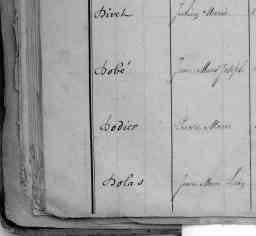 Bivet Julien Marie
Bobé Jean Marie Joseph
Bodier Pierre Marie
Bolas Jean Marie